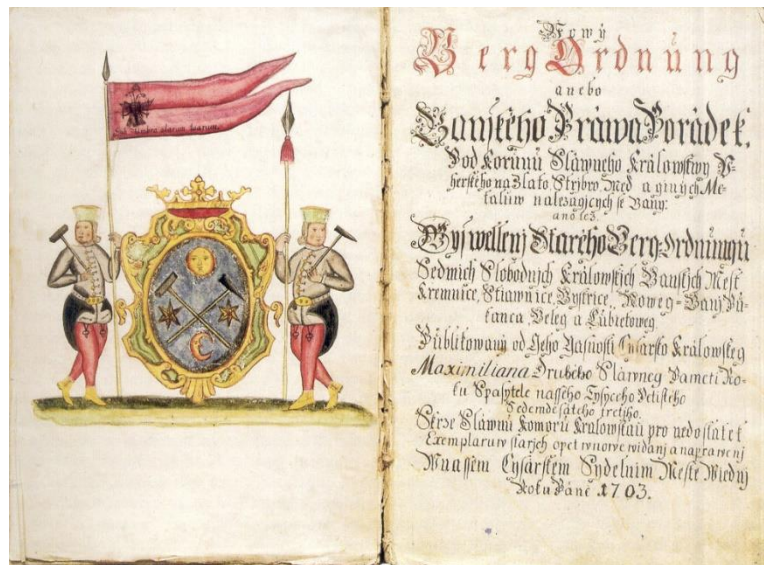 Sub umbra alarum tuarum.
Nowý
Berg Ordnüng
anebo
Banského Práwa Porádek.
Pod Korunu Sláwneho Králowstwy V-
herského na Zlato Strýbro Med a giných Me-
taluw nalezagicych se Bany:
ano tez.
Wyswetlenj Starého Berg-Ordnungu
Sedmich Slobodnjch Králowskych Banskych Mest
Kremnice, Stiawnice, Bystrice, Noweg-Bani Pu-
kanca Beleg a Lübietoweg.
Publikowaný od Geho Gasnosti Cysarsko Králowskeg
Maximiliana Druhého Sláwneg Pameti Ro-
ku Spasytele nasseho Tysyceho Petisteho
Sedemdesateho tretiho.
Skrse Sláwnu Komoru Kralowskau pro nedostatek
Exemplaruw starych opet wnowe widanj a naprawenj
W nassem Cysarskem Sydelnim Meste Wiednj
Roku Páne 1703.